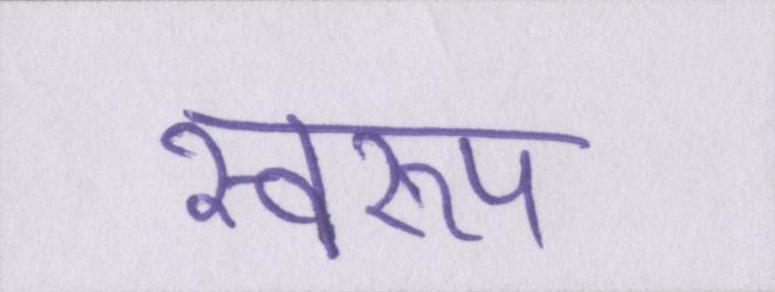 स्वरूप